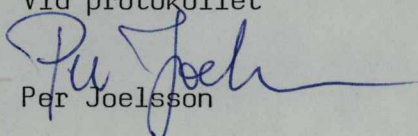 Vid protokollet
Per Joelsson
Per Joelsson